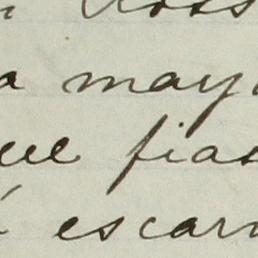 a may
ue fias
escar